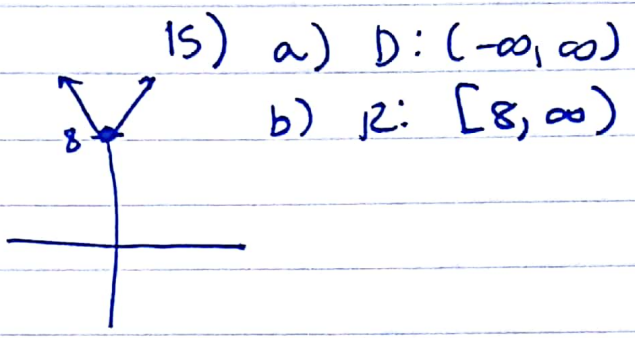 15) a) D: (-∞, ∞)
b) R: [8, ∞)
8